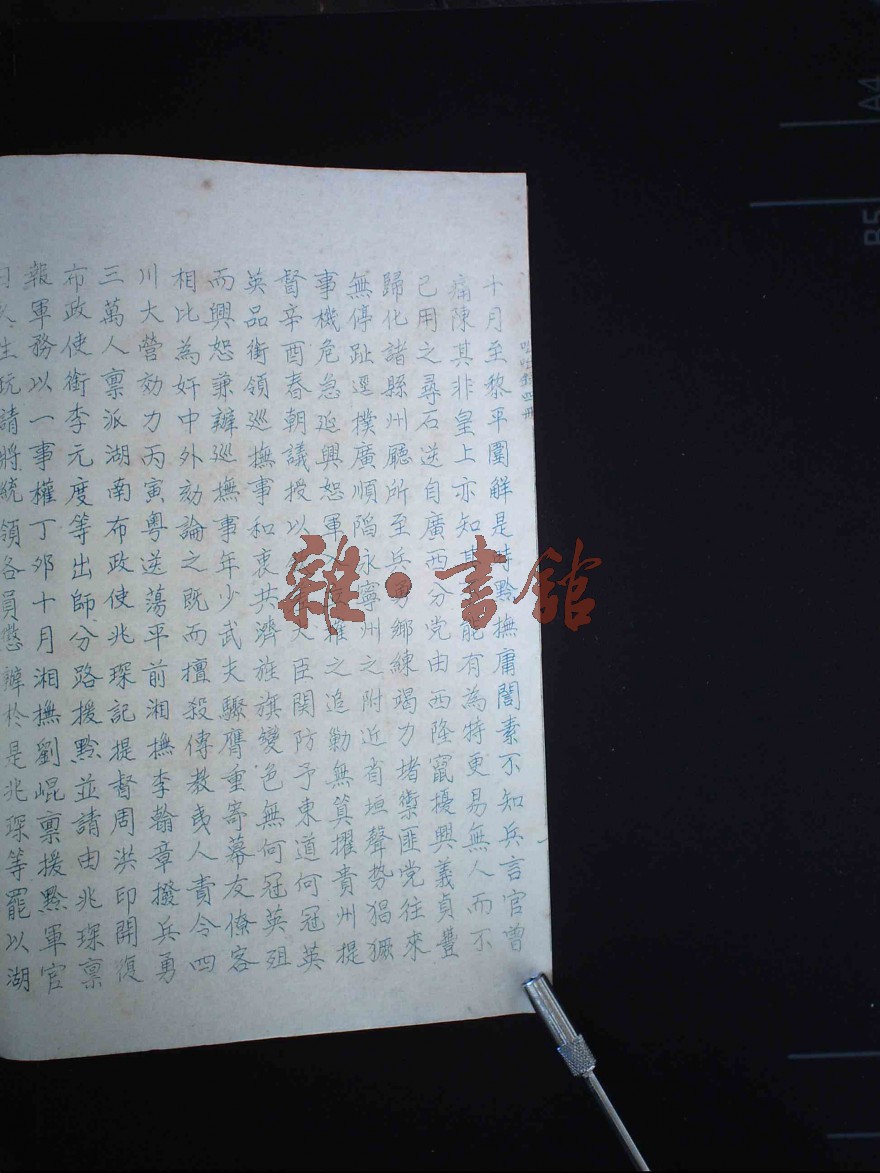 十月至黎平圍解是時黔撫庸闇素不知兵言官曾
痛陳其非皇上亦知其能有為特更易無人而不
已用之尋石逆自廣西分党由西隆竄擾興義貞豐
歸化諸縣州廳所至兵勇鄉練竭力堵禦匪党往來
無停趾逕撲廣順陷永寧州之附近省垣聲勢猖獗
事機危急迨興恕軍之追勦無算擢貴州提
督辛酉春朝議授以大臣関防予東道何冠英
英品銜領巡撫事和衷共濟旌旗變色無何冠英殂
而興恕兼辦巡撫事年少武夫驟膺重寄幕友僚客
相比為奸中外劾論之既而擅殺傳教夷人責令四
川大營効力丙寅粵逆蕩平前湘撫李翰章撥兵勇
三萬人禀派湖南布政使兆琛記提督周洪印開復
布政使銜李元度等出師分路援黔並請由兆琛禀
報軍務以一事權丁夘十月湘撫劉崐禀援黔軍官
日久生玩請將統領各員懲辦於是兆琛等罷以湖
雜·書館
A4
B5